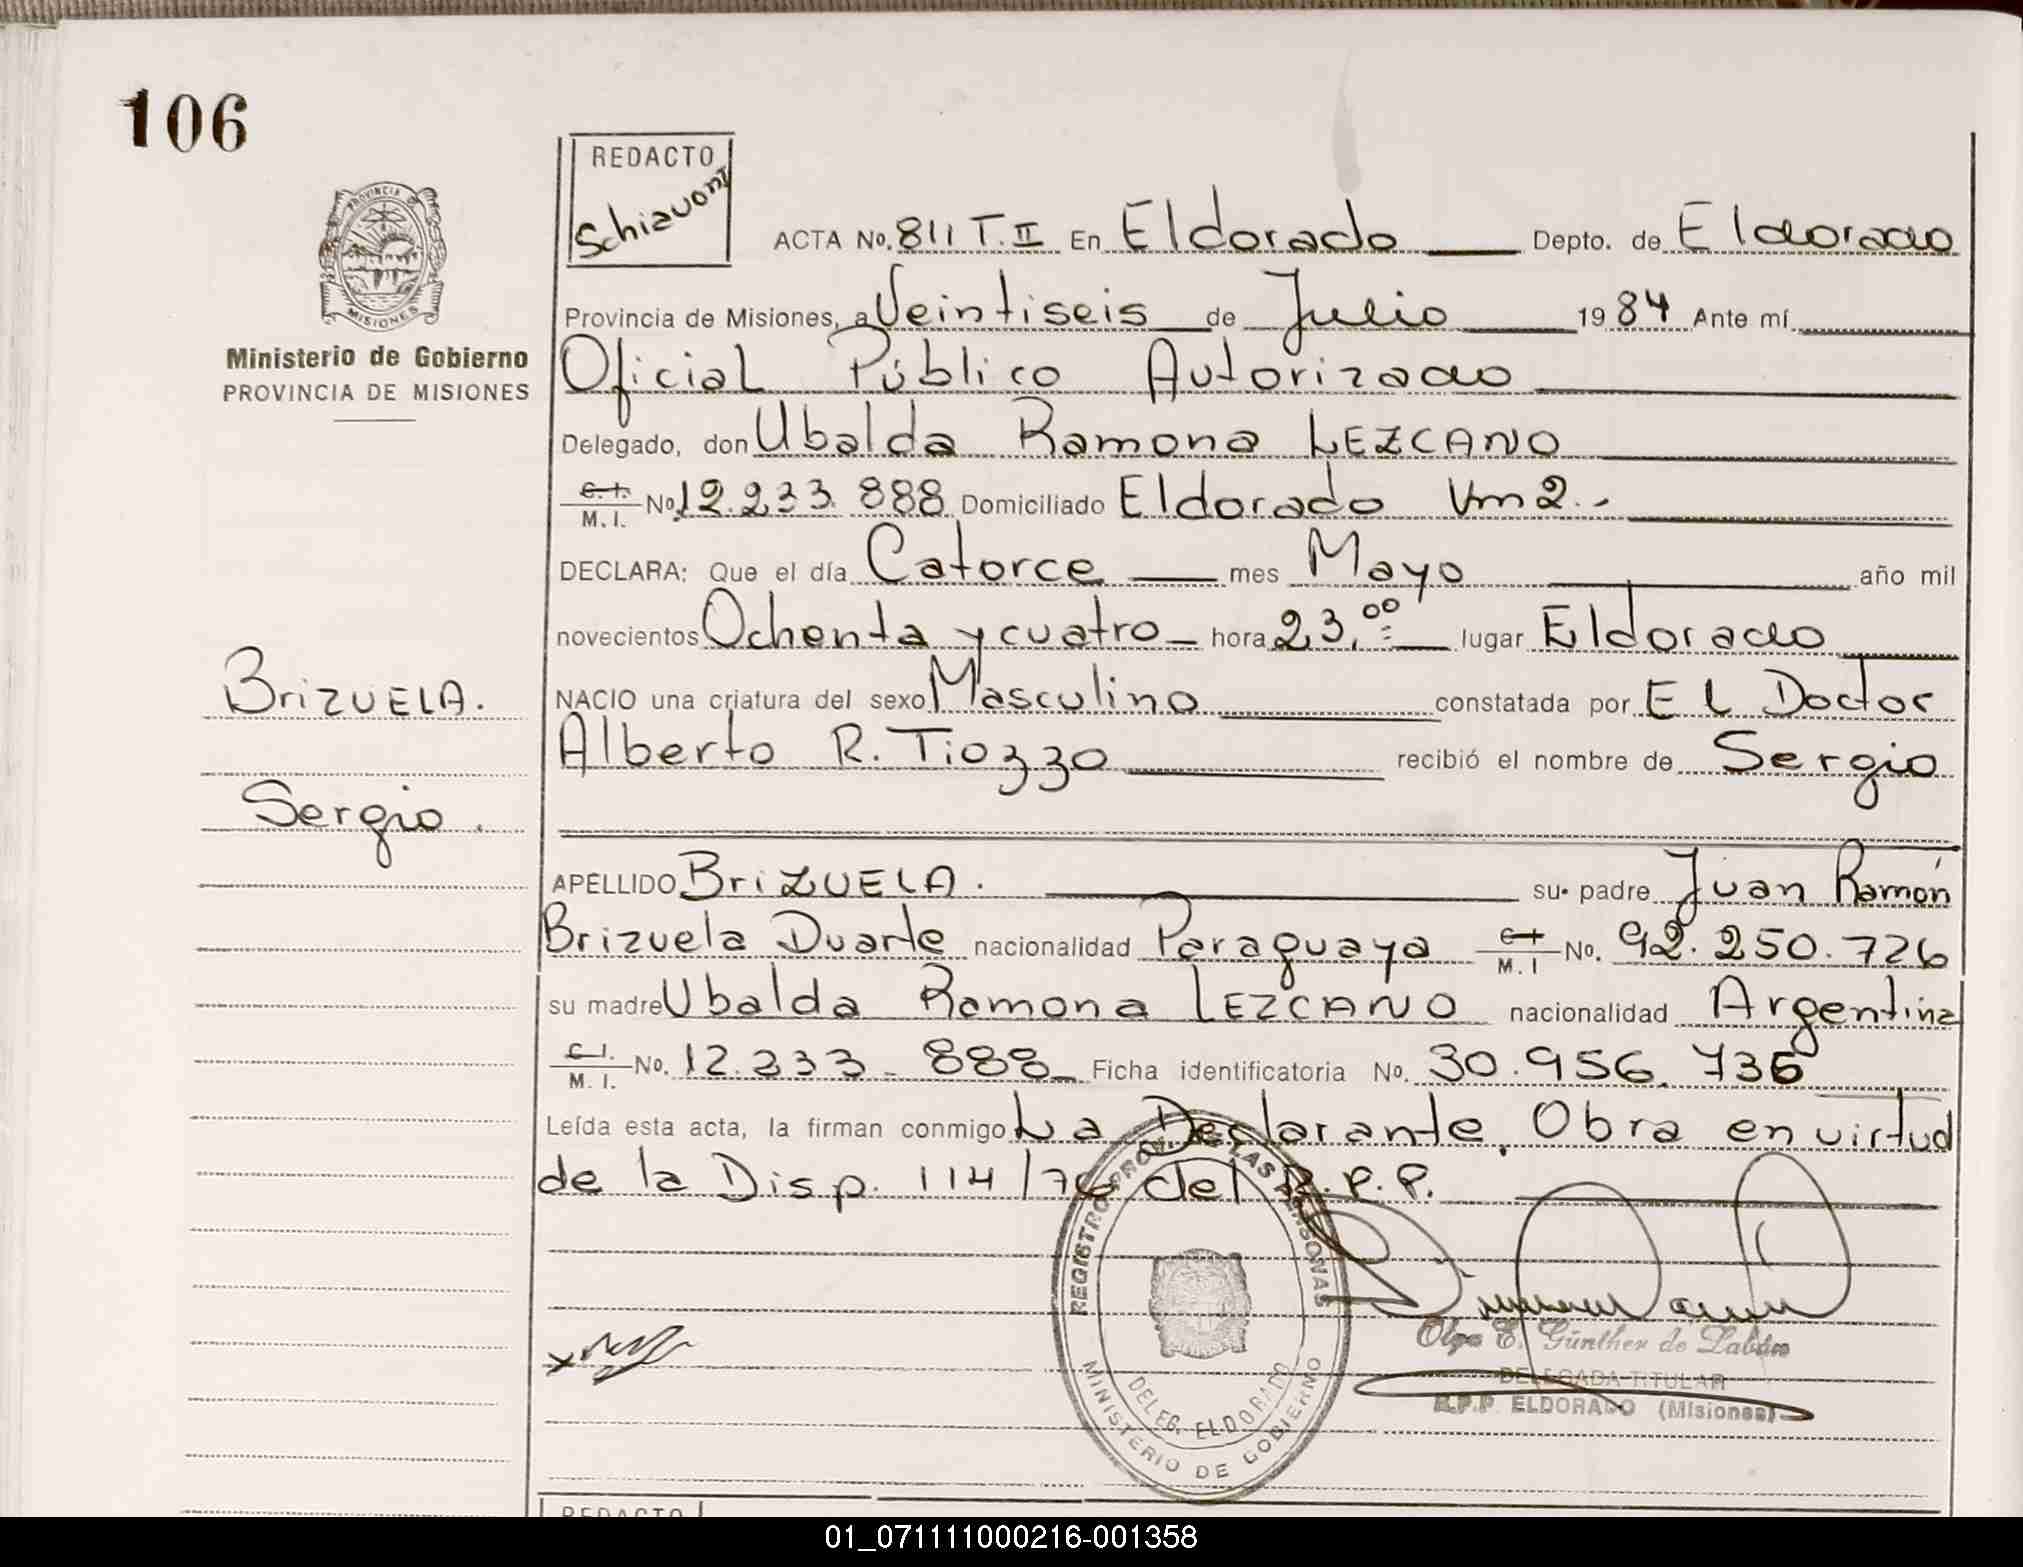 106
REDACTO
Schiavoni
PROVINCIA D
MISIONES
Ministerio de Gobierno
PROVINCIA DE MISIONES
ACTA No. 811 T. II En Eldorado Depto. de Eldorado
Provincia de Misiones, a Veintiseis de Julio 1984 Ante mí
Oficial Público Autorizado
Delegado, don Ubalda Ramona LEZCANO
C.I. M.I. No. 12.233.888 Domiciliado Eldorado Km2.-
DECLARA: Que el día Catorce mes Mayo año mil
novecientos Ochenta y cuatro hora 23,00 lugar Eldorado
NACIO una criatura del sexo Masculino constatada por El Doctor
Alberto R. Tiozzo recibió el nombre de Sergio
BrizUELA.
Sergio.
APELLIDO BriZUELA. su padre Juan Ramón
Brizuela Duarte nacionalidad Paraguaya C.I. M.I No. 92.250.726
su madre Ubalda Ramona LEZCANO nacionalidad Argentina
C.I. M.I. No. 12.233.888 Ficha identificatoria No. 30.956.736
Leída esta acta, la firman conmigo La Declarante. Obra en virtud
de la Disp. 114/76 del R.P.P.
REGISTRO PROV. LAS PERSONAS
DELEG. ELDORADO
MINISTERIO DE GOBIERNO
Olga E. Günther de Labán
DELEGADA TITULAR
R.P.P. ELDORADO (Misiones)
REDACTO
01_071111000216-001358